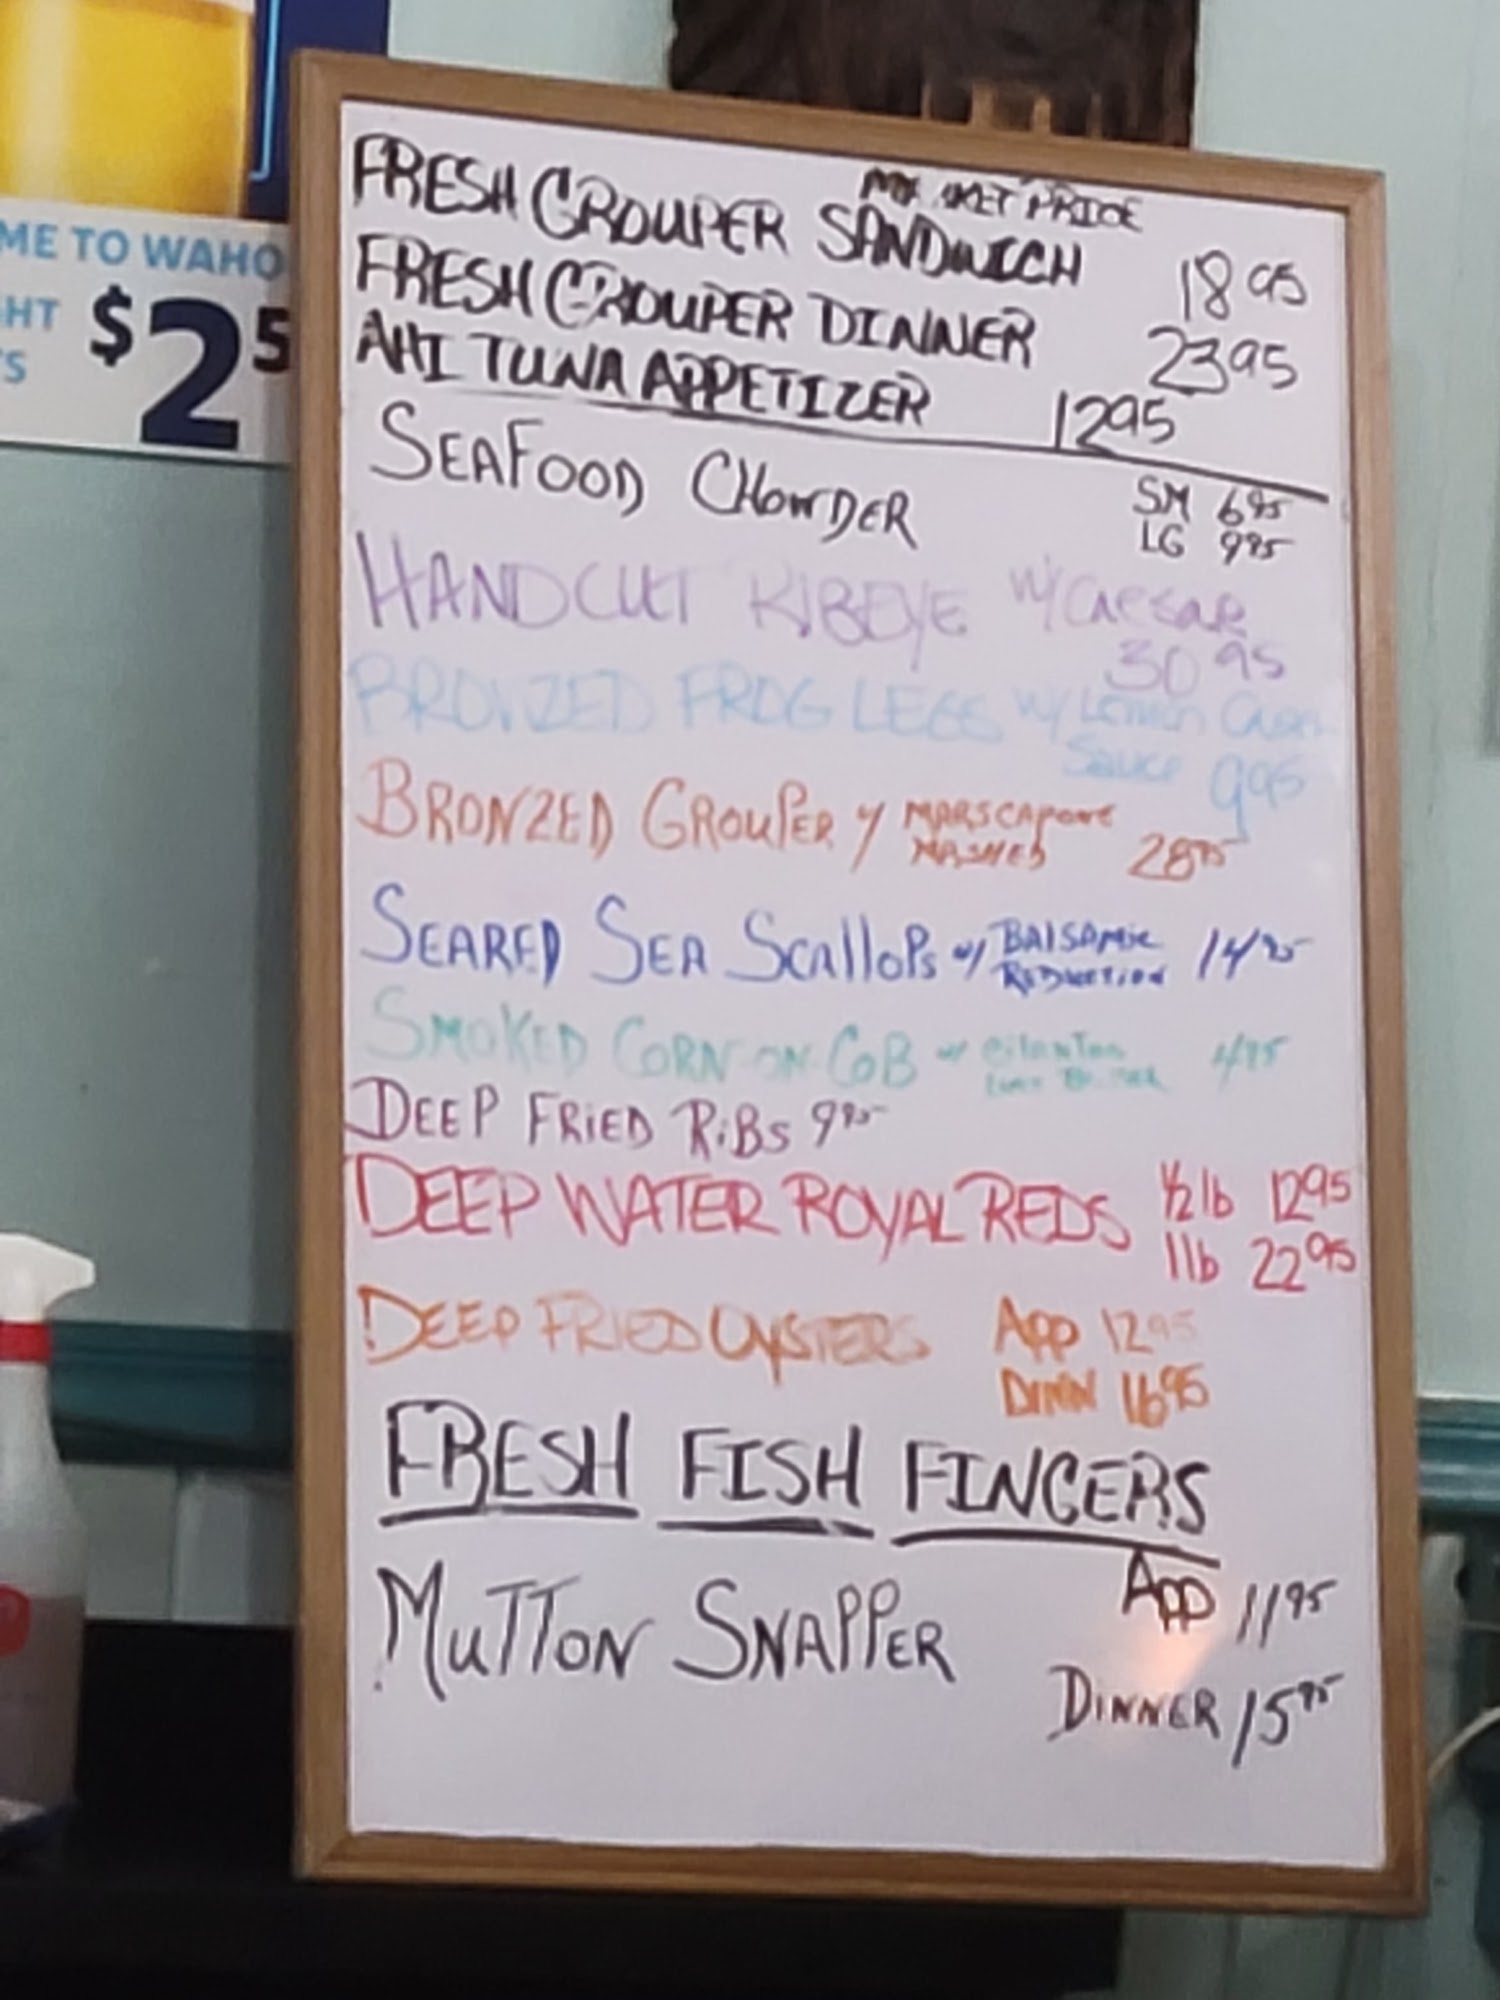 ME TO WAHO
HT
S
$2 5
MARKET PRICE
FRESH GROUPER SANDWICH 18 95
FRESH GROUPER DINNER 23 95
AHI TUNA APPETIZER 12 95
SEAFOOD CHOWDER SM 6 95
LG 9 95
HANDCUT RIBEYE W/ CAESAR
30 95
BRONZED FROG LEGS W/ LEMON
SAUCE 9 95
BRONZED GROUPER W/ MARSCAPONE
MASHED 28 95
SEARED SEA SCALLOPS W/ BALSAMIC
REDUCTION 14 95
SMOKED CORN-ON-COB W/ CILANTRO
4 95
DEEP FRIED RIBS 9 95
DEEP WATER ROYAL REDS 1/2 lb 12 95
1 lb 22 95
DEEP FRIED OYSTERS APP 12 95
DINN 16 95
FRESH FISH FINGERS
MUTTON SNAPPER APP 11 95
DINNER 15 95